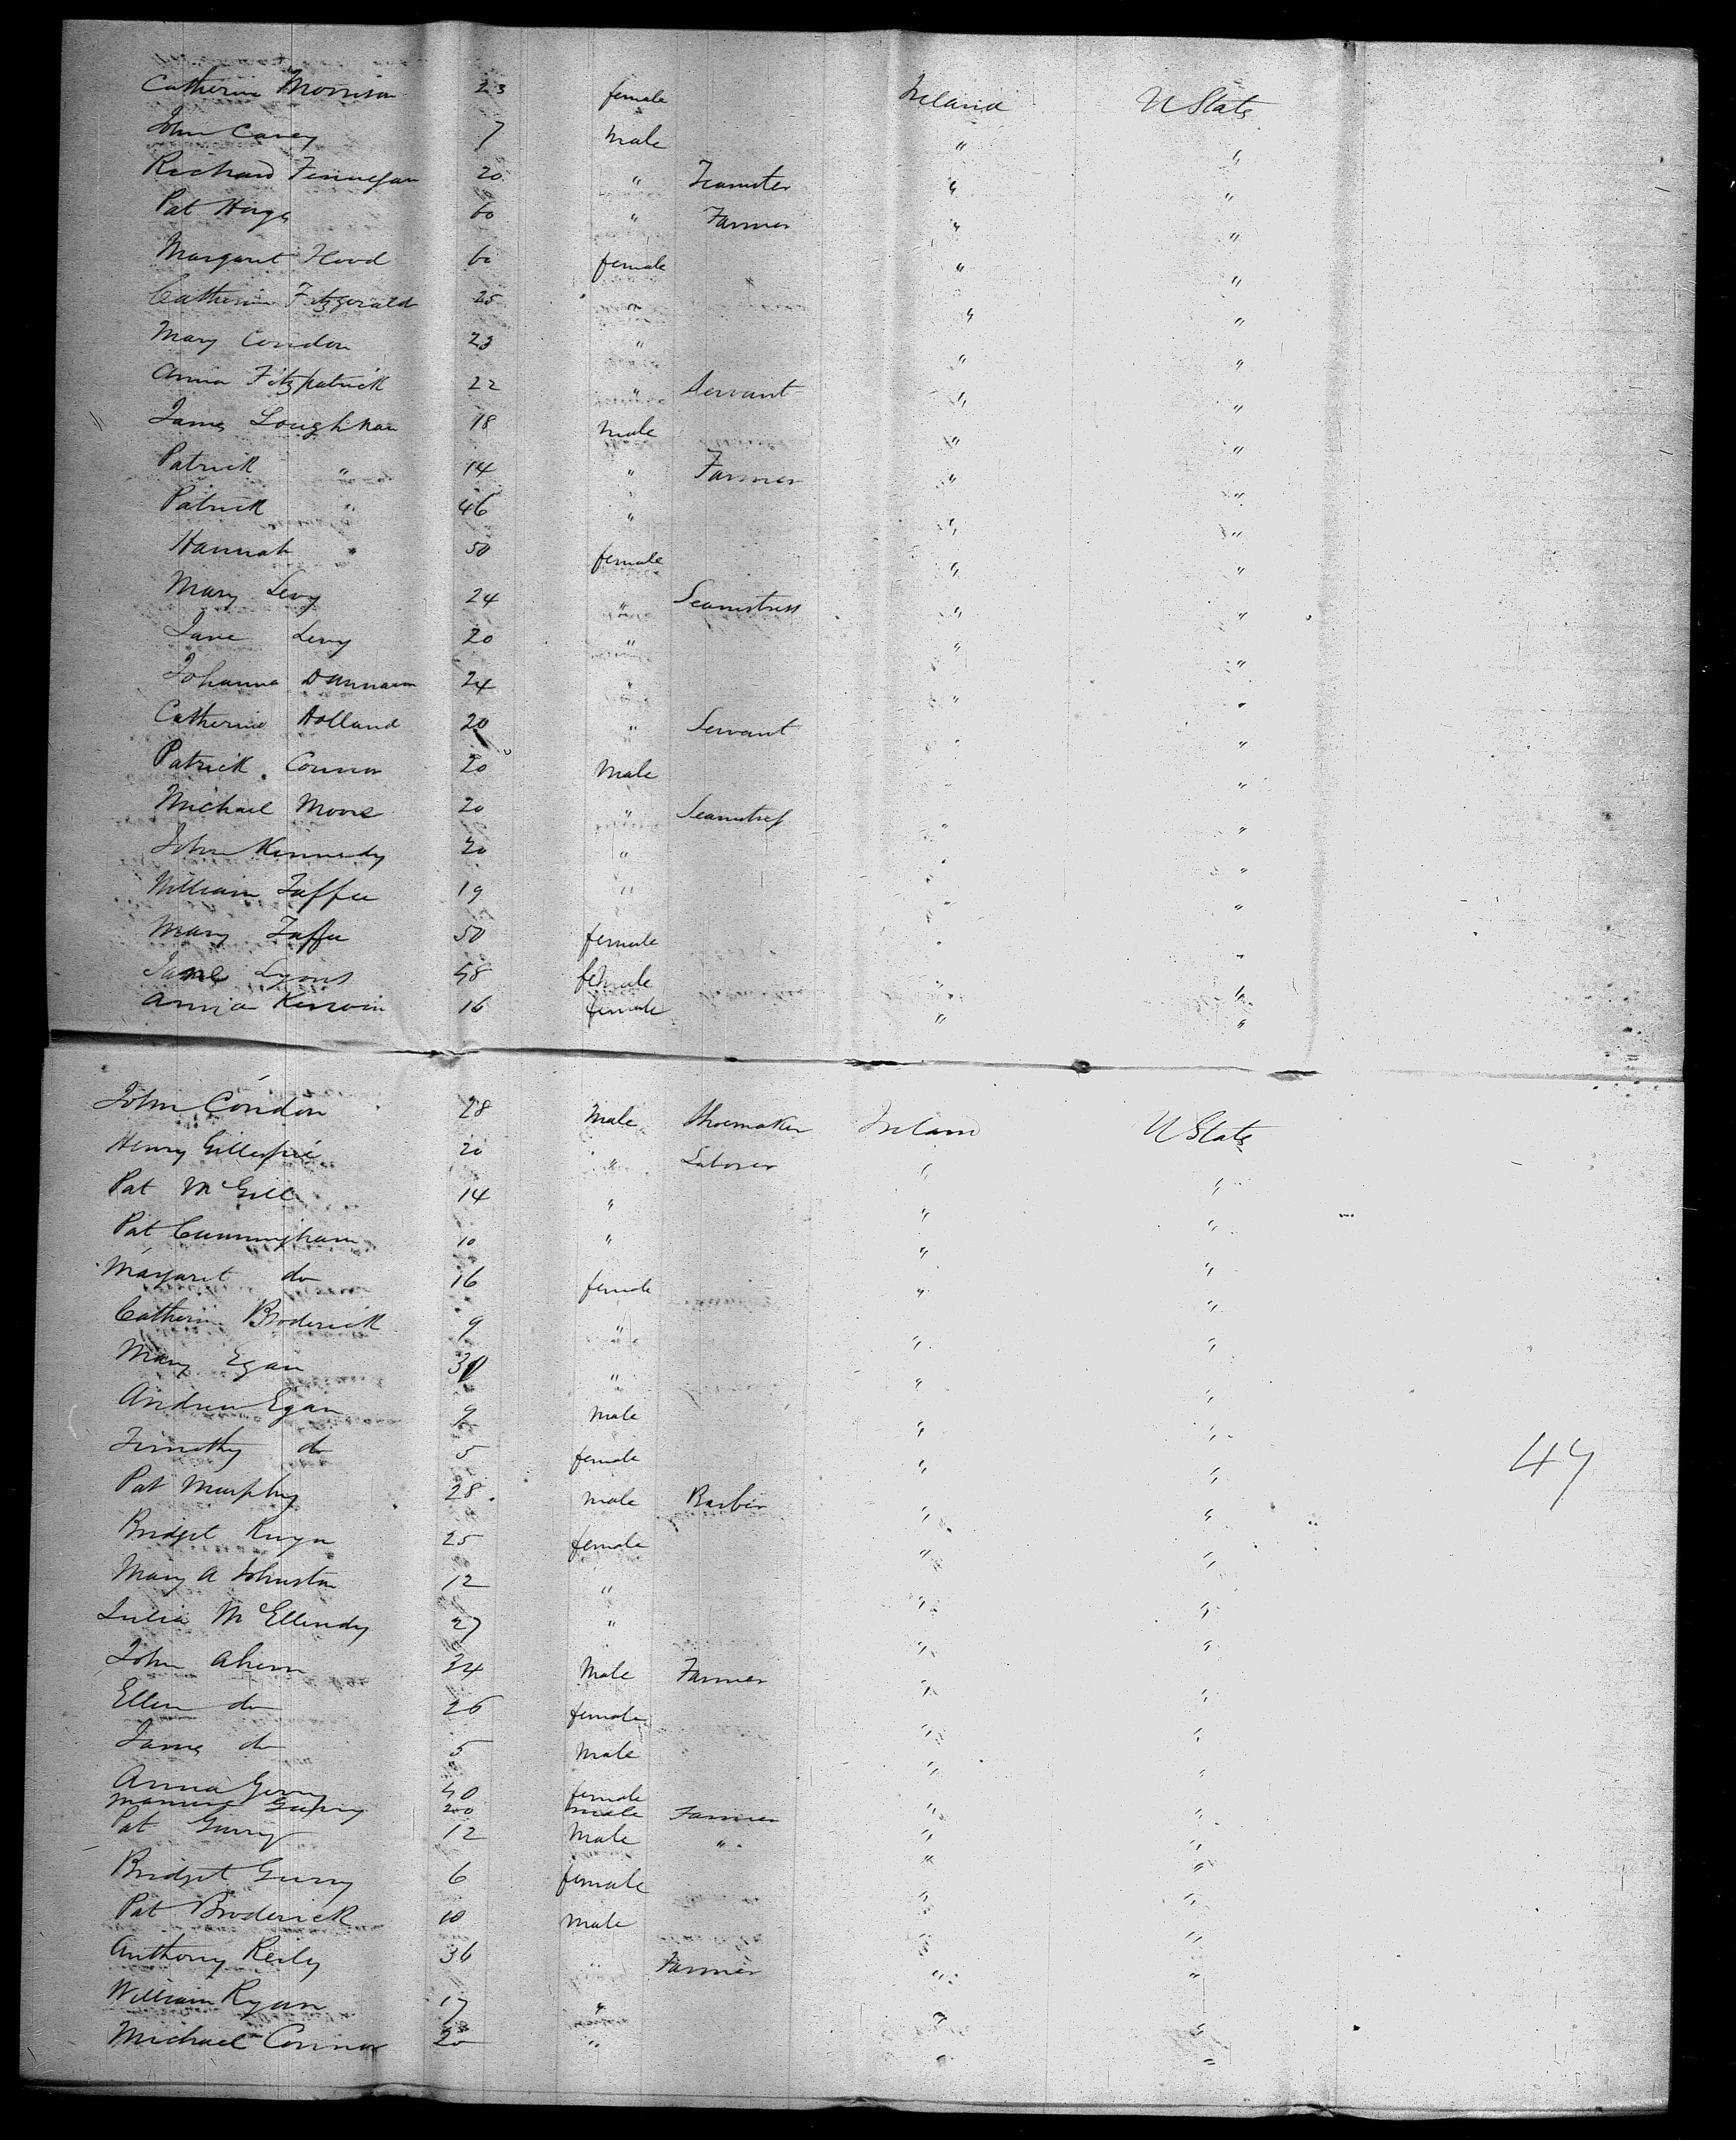 Catherine Morrison 23 female Ireland U States
John Carey 7 Male " "
Richard Finnegan 20 " Teamster " "
Pat Hays 60 " Farmer " "
Margaret Hood 60 female " "
Catherine Fitzgerald 25 " " "
Mary Condon 23 " " "
Anna Fitzpatrick 22 " Servant " "
James Loughnan 18 Male " "
Patrick " 14 " Farmer " "
Patrick " 46 " " "
Hannah " 50 female " "
Mary Levy 24 " Seamstress " "
Jane Levy 20 " " "
Johanna 24 " " "
Catherine Holland 20 " Servant " "
Patrick Connor 20 Male " "
Michael Moore 20 " Seamstress " "
John Kennedy 20 " " "
William Taffee 19 " " "
Mary Taffee 50 female " "
Jane Lyons 48 female " "
Annia Kerwin 16 female " "
John Condon 28 Male Shoemaker Ireland U States
Henry Gillespie 20 " Laborer " "
Pat McGill 14 " " "
Pat Cunningham 10 " " "
Margaret do 16 female " "
Catherin Broderick 9 " " "
Mary Egan 30 " " "
Andrew Egan 9 Male " "
Timothy do 5 female " "
47
Pat Murphy 28 Male Barber " "
Bridget 25 female " "
Mary A Johnston 12 " " "
Julia McEllendy 27 " " "
John Ahern 34 Male Farmer " "
Ellen do 26 female " "
James do 5 Male " "
Anna 40 female " "
20 male Farmer
Pat 12 Male " " "
Bridget 6 female " "
Pat Broderick 10 Male " "
Anthony Reily 36 " Farmer " "
William Ryan 17 " " "
Michael Connor 20 " " "